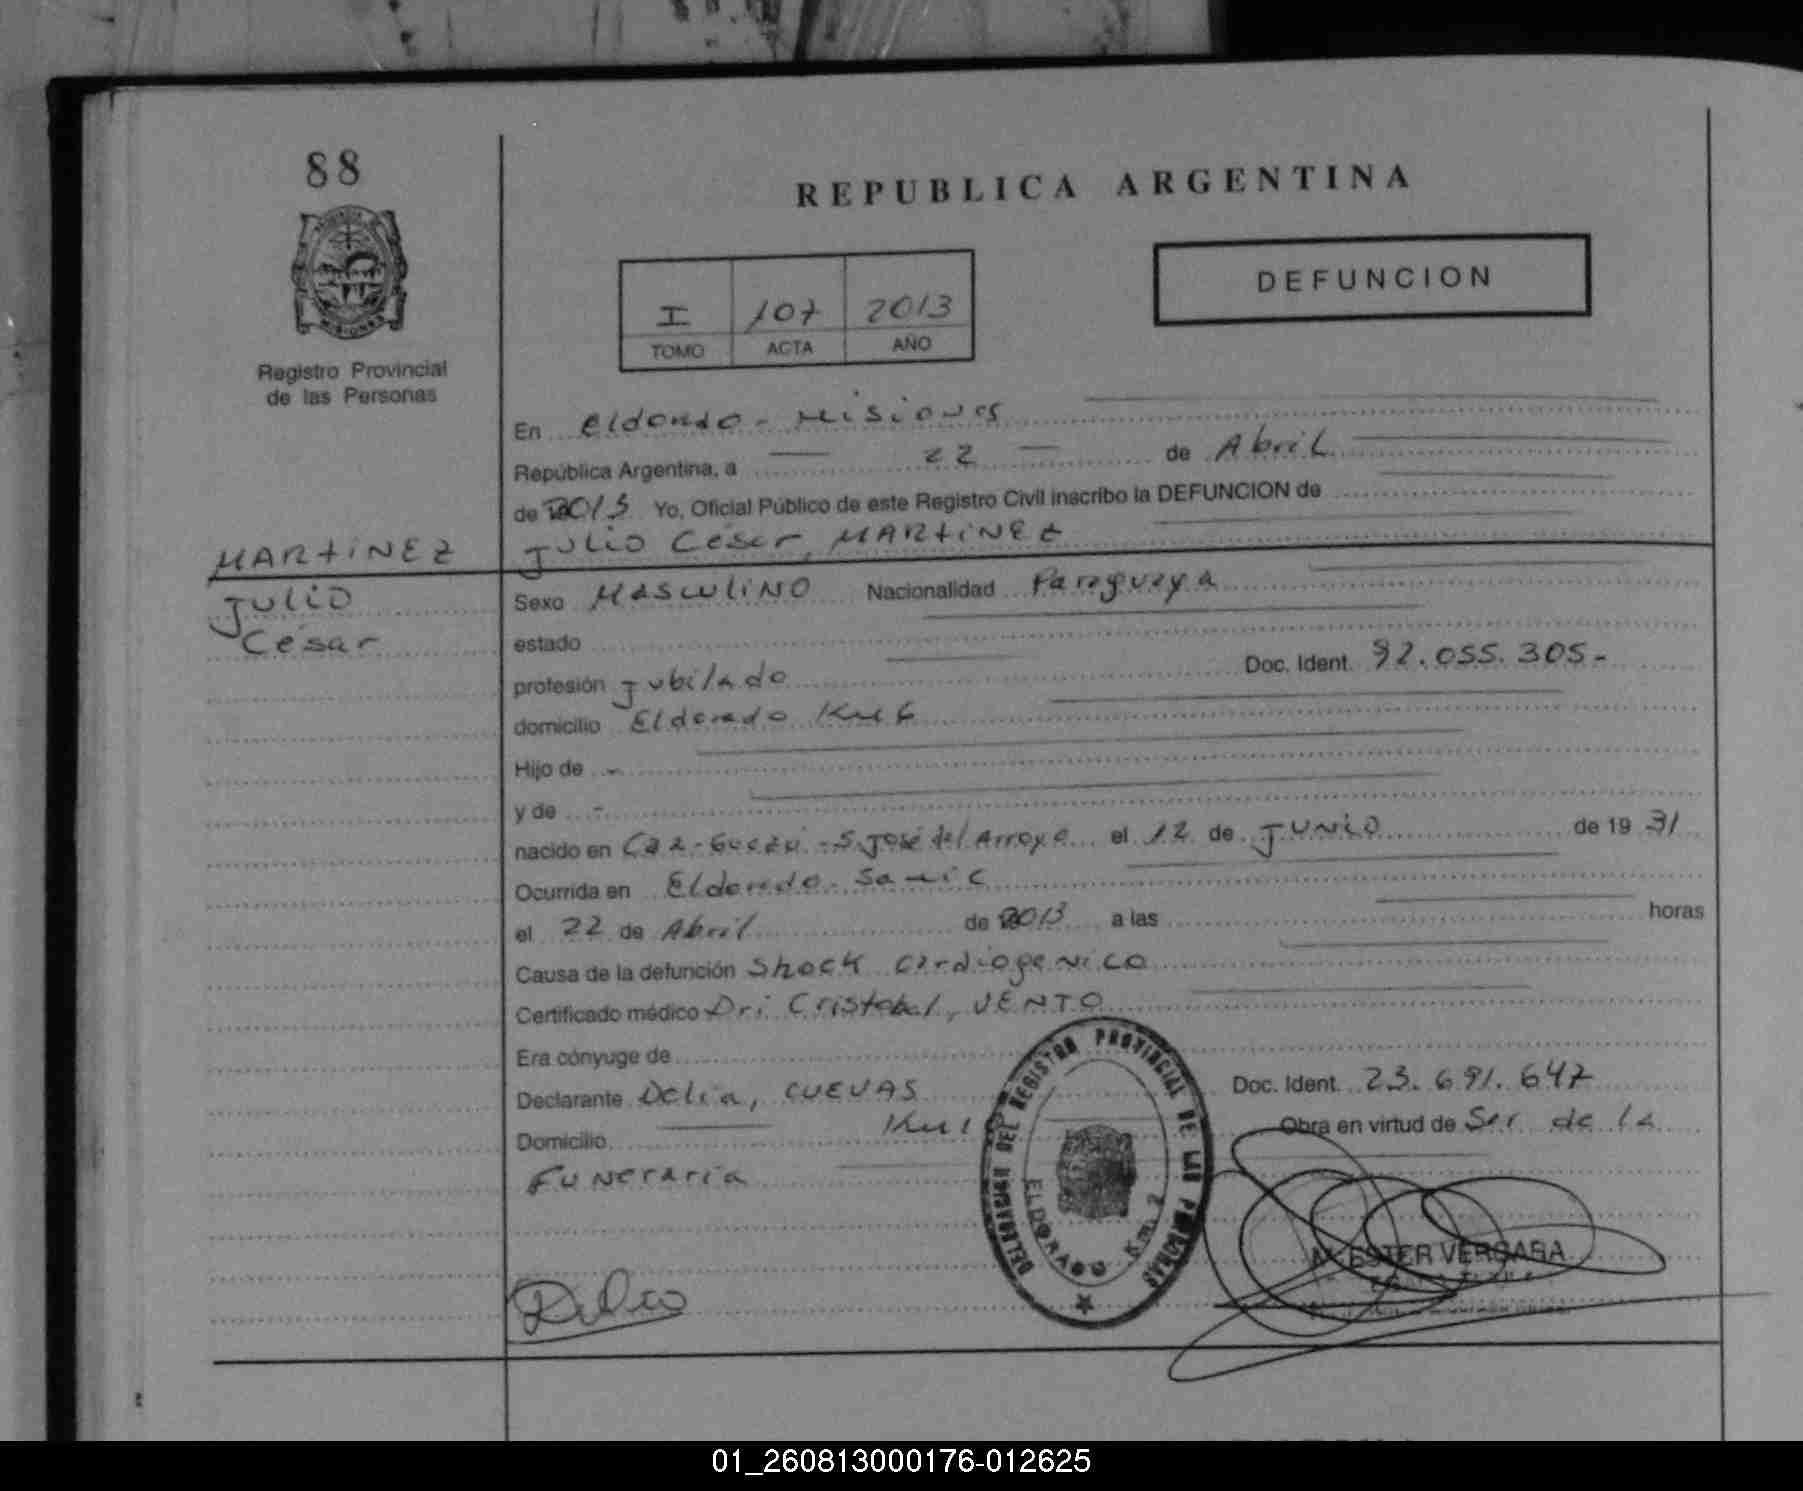 88
REPUBLICA ARGENTINA
DEFUNCION
I 107 2013
TOMO ACTA AÑO
Registro Provincial
de las Personas
En Eldorado - Misiones
República Argentina, a 22 de Abril
de 2013 Yo, Oficial Público de este Registro Civil inscribo la DEFUNCION de
MARTINEZ
Julio César, MARTINEZ
Julio
César
Sexo MASCULINO Nacionalidad Paraguaya
estado
profesión Jubilado Doc. Ident. 92.055.305-
domicilio Eldorado Km 6
Hijo de -
y de -
nacido en Caa-Guazú - S. José del Arroyo el 12 de Junio de 19 31
Ocurrida en Eldorado - Samic
el 22 de Abril de 2013 a las horas
Causa de la defunción Shock cardiogenico
Certificado médico Dr: Cristobal, VENTO
Era cónyuge de
Declarante Delia, CUEVAS Doc. Ident. 23.691.647
Domicilio Km 1 Obra en virtud de Ser de la
Funeraria
DELEGACION DEL REGISTRO PROVINCIAL DE LAS PERSONAS
ELDORADO Km. 2
M. ESTER VERGARA
01_260813000176-012625